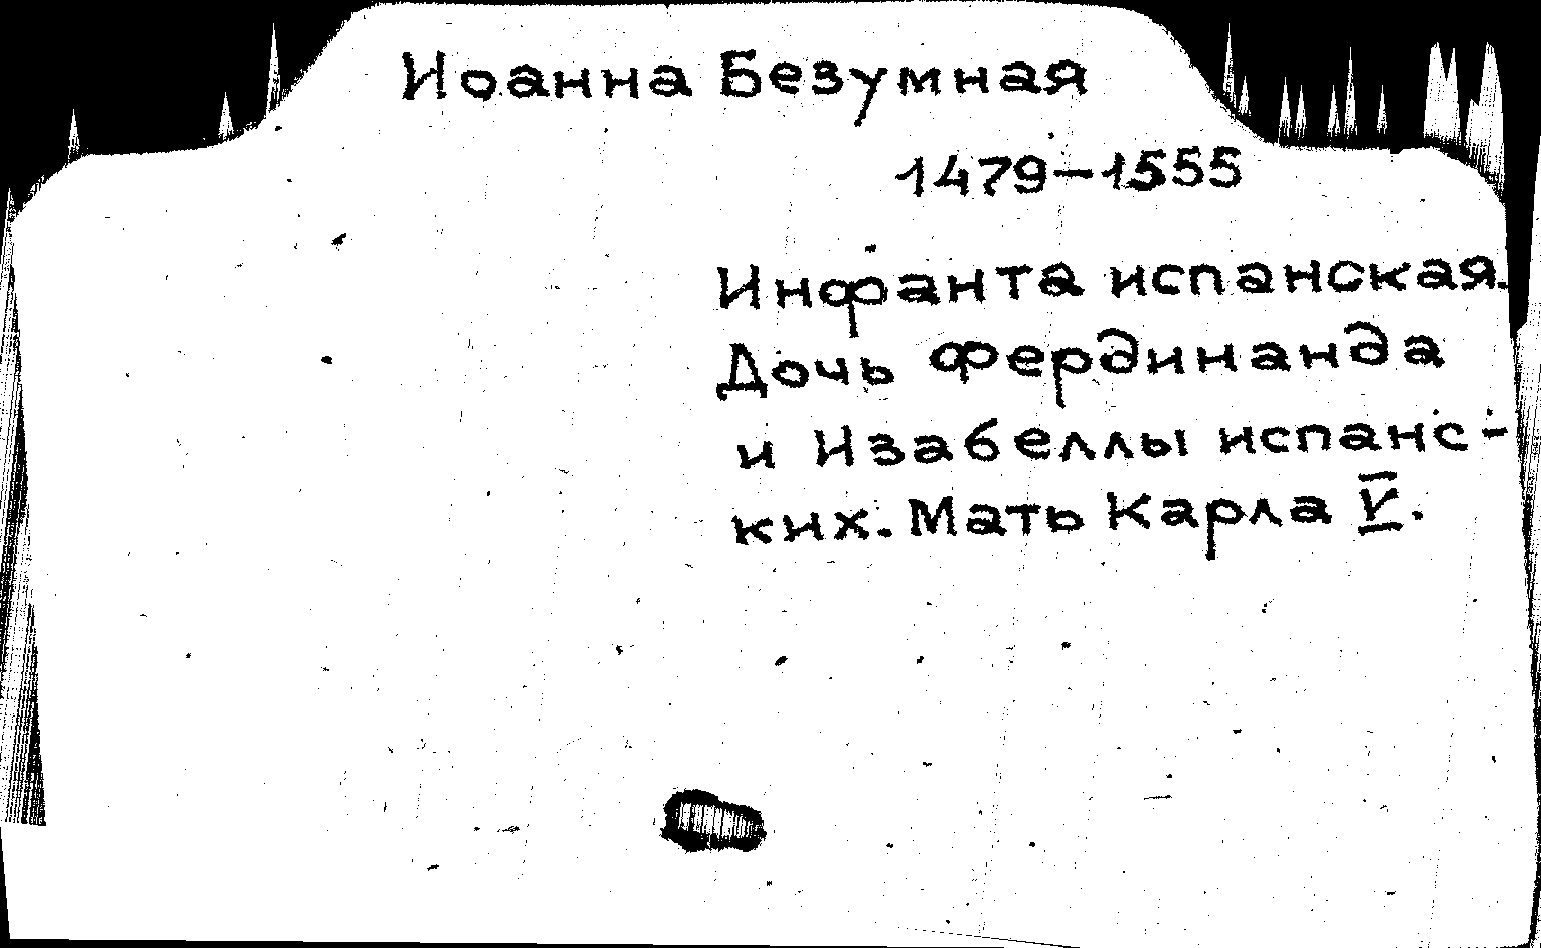 Иоанна Безумная
1479-1555
Инфанта испанская.
Дочь Фердинанда
и Изабеллы испанс-
ких. Мать Карла V.